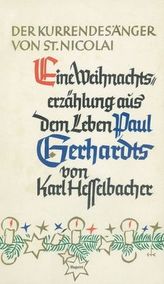 DER KURRENDESÄNGER
VON ST. NICOLAI
Eine Weihnachts=
erzählung aus
dem Leben Paul
Gerhardts
von
Karl Hesselbacher